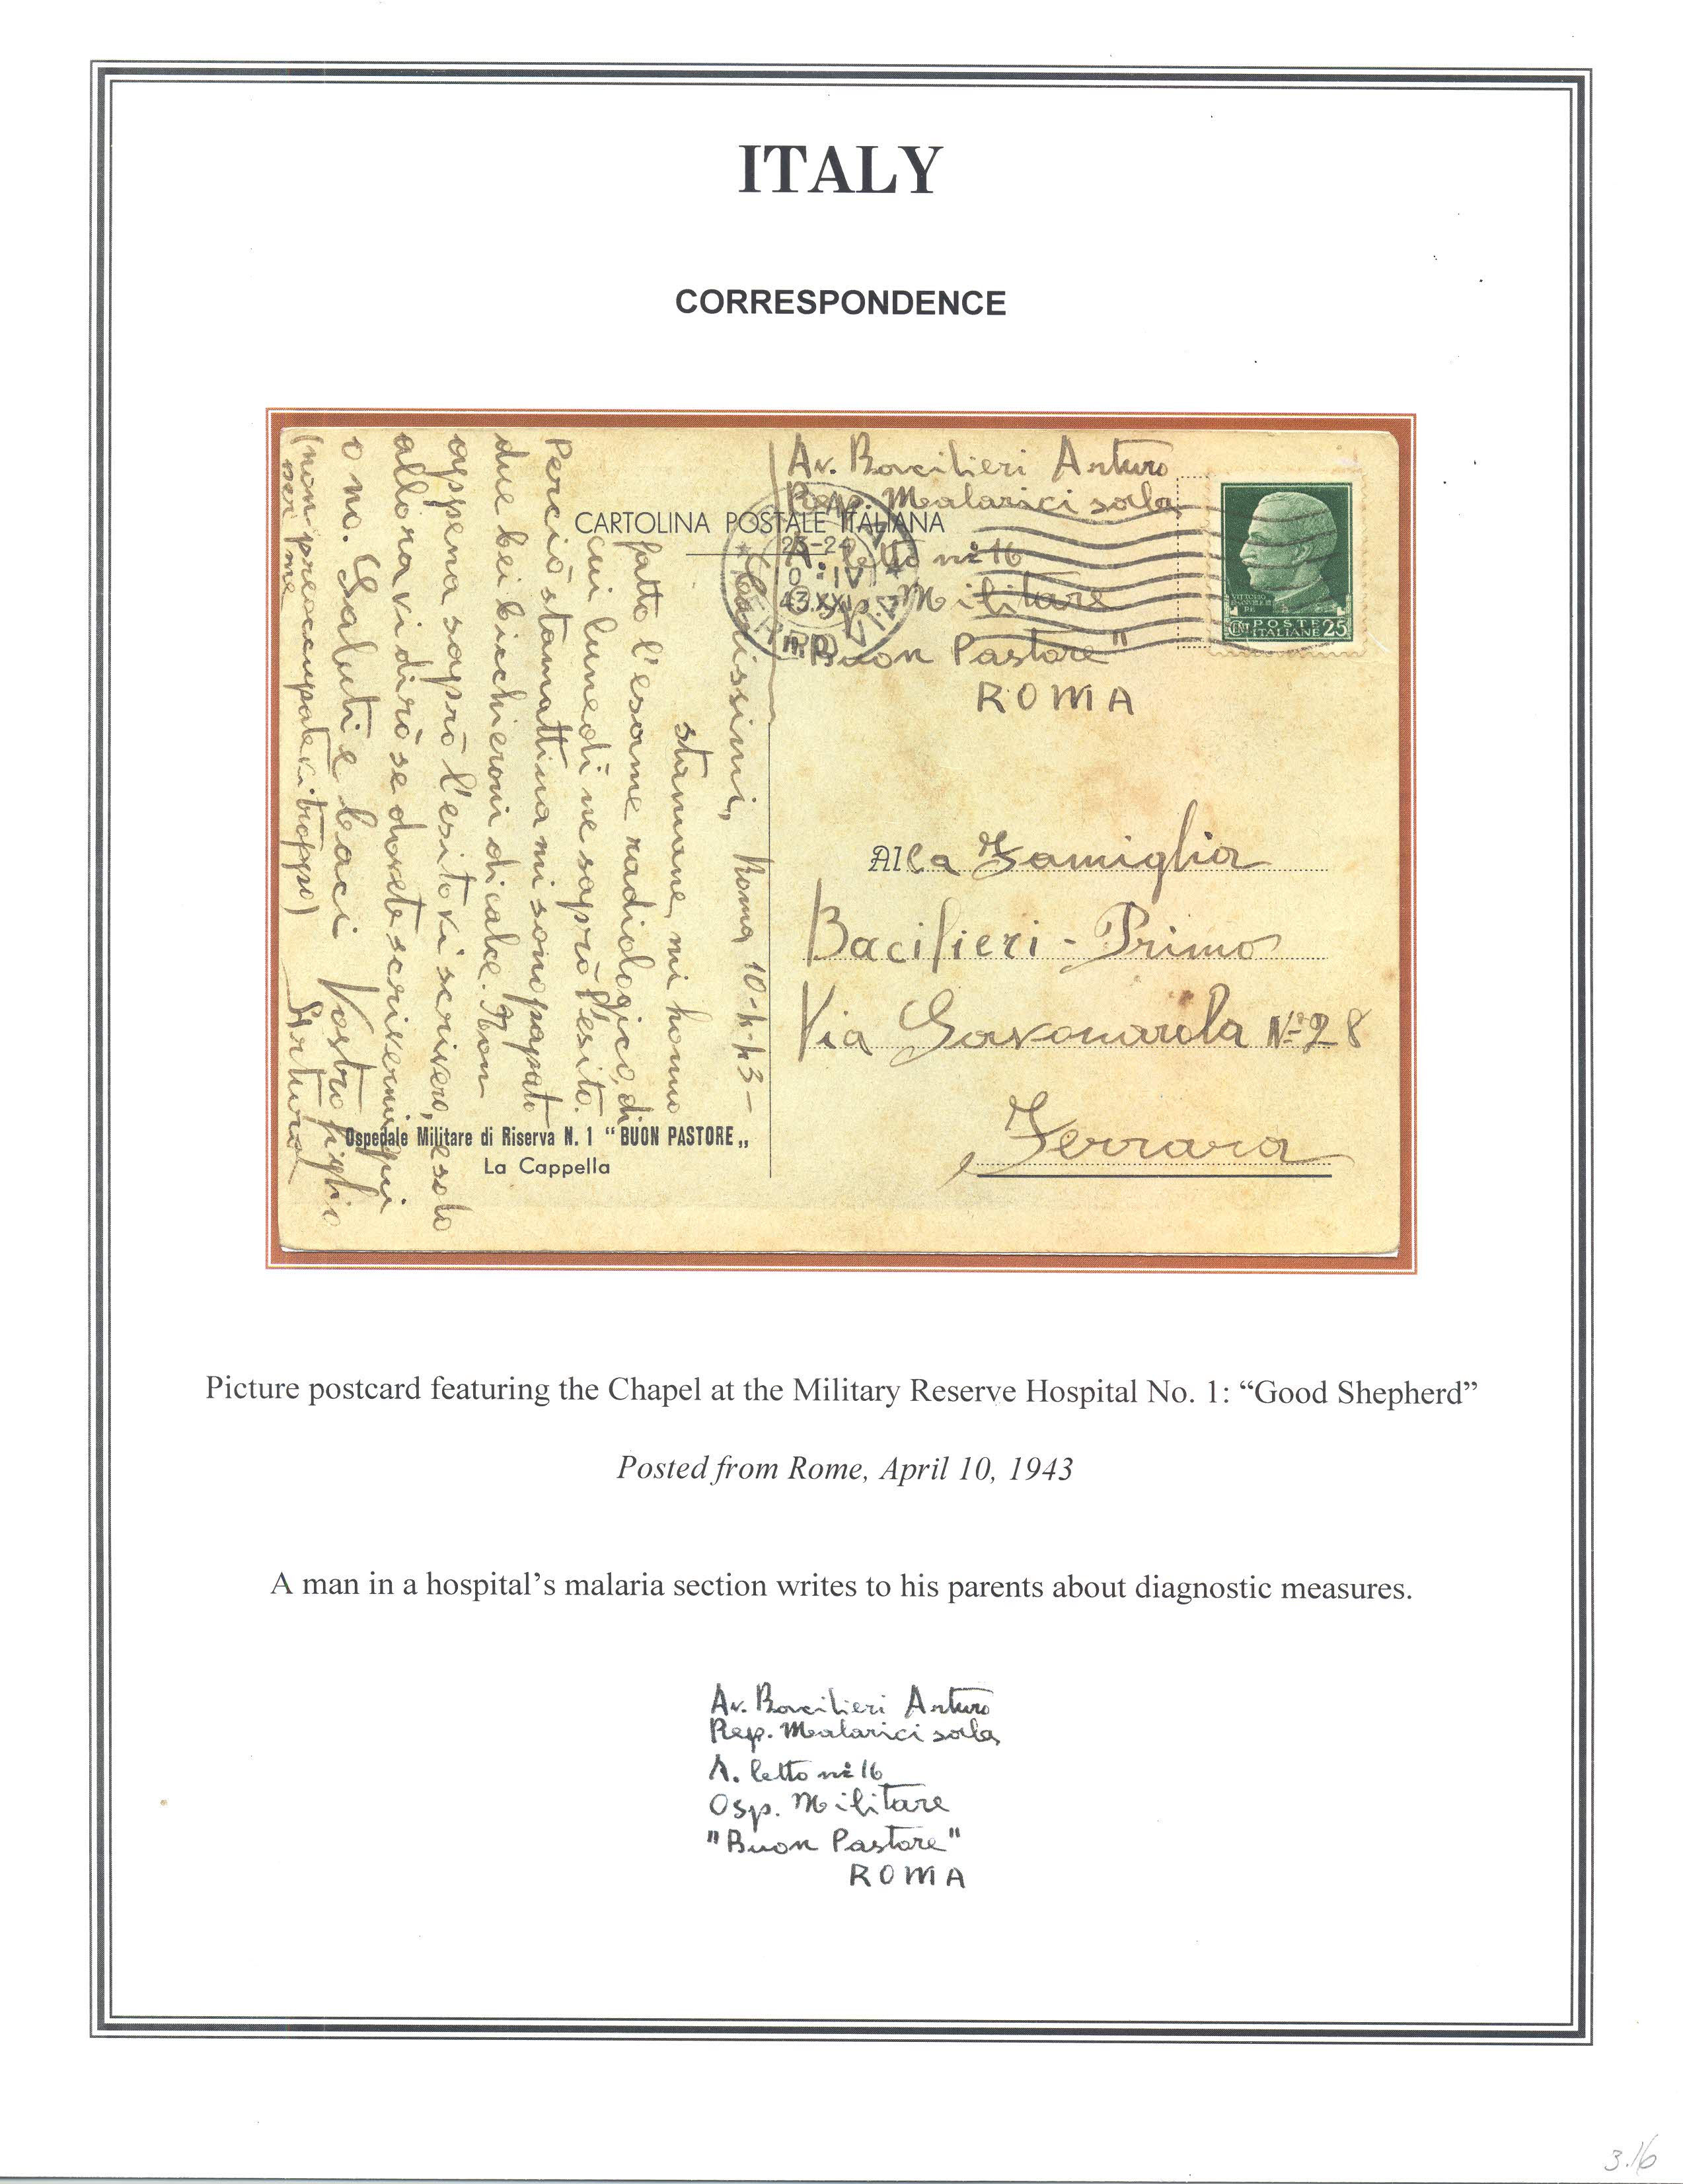 ITALY
CORRESPONDENCE
Av. Bacilieri Arturo
Rep. Malarici sala
A. letto nº 16
Osp. Militare
"Buon Pastore"
ROMA
CARTOLINA POSTALE ITALIANA
23-24
10.IV
43.XXI
FERROVIA
VITTORIO
EMANUELE III
RE
POSTE
ITALIANE
CENT 25
Roma 10-4-43-
Carissimi,
stamane, mi hanno
fatto l'esame radiologico, di
cui lunedì ne saprò l'esito.
Perciò stamattina mi sono pappato
due bei bicchieroni di calce. Non
appena saprò l'esito vi scriverò, e solo
allora vi dirò se dovete scrivermi qui
o no. Saluti e baci Vostro figlio
Arturo
(non preoccupatevi troppo)
per me
Alla Famiglia
Bacilieri - Primo
Via Savonarola Nº 28
Ferrara
Ospedale Militare di Riserva N. 1 “BUON PASTORE„
La Cappella
Picture postcard featuring the Chapel at the Military Reserve Hospital No. 1: “Good Shepherd”
Posted from Rome, April 10, 1943
A man in a hospital’s malaria section writes to his parents about diagnostic measures.
Av. Bacilieri Arturo
Rep. Malarici sala
A. letto nº 16
Osp. Militare
"Buon Pastore"
ROMA
3.16